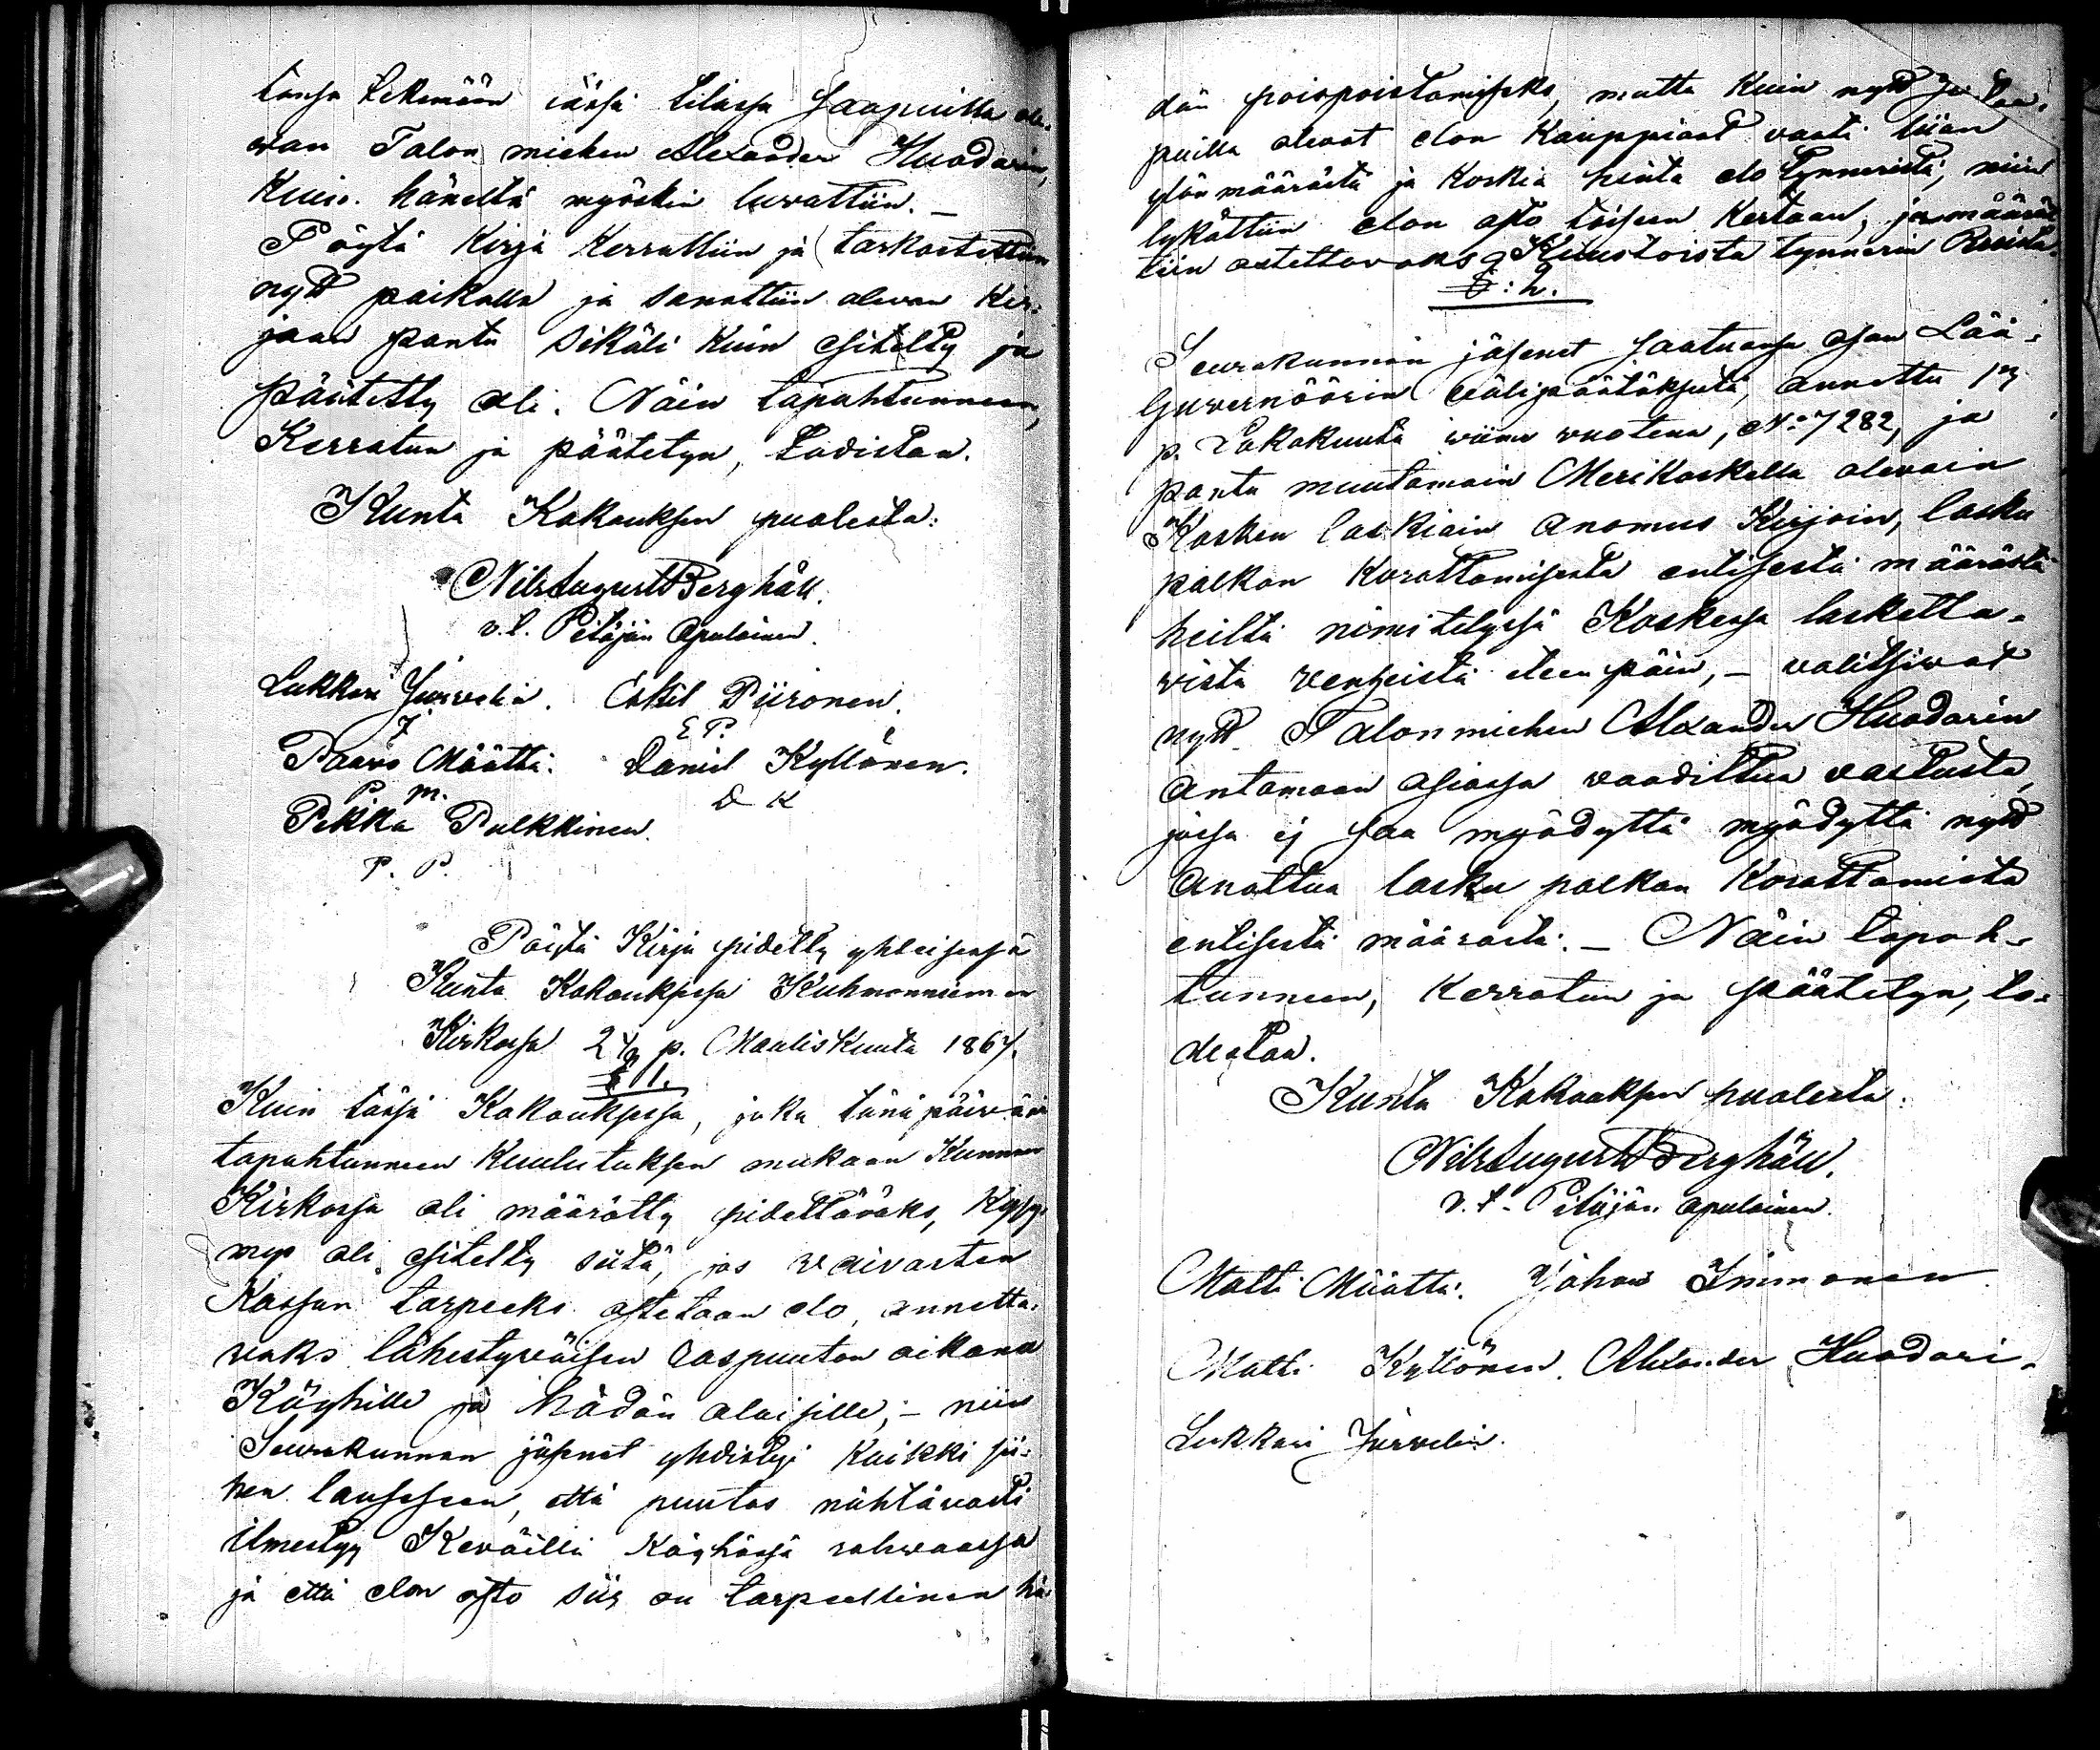 tänsä tekemään tässä tilassa saapuilla ole-
wan Talon miehen Alexander Huodarin,
Kuin häneltä myöskin luwattiin. —
Pöytä Kirja Kerrattiin ja tarkastettiin
nytt paikalla ja sanottiin olewan Kir-
jaan pantu sikäli kuin esitelty ja
päätetty oli. Näin tapahtunneen,
Kerratun ja päätetyn, todistan.
Kunta Kokouksen puolesta:
Nils August Berghäll.
v.t. Pitäjän Apulainen.
Lukkari Järvelin. Eskil Piironen.
J E P.
Paavo Määttä. Daniel Kyllönen.
P M. D K
Pekka Pulkkinen.
P. P.
Pöytä Kirja pidetty yhteisessä
Kunta Kokouksessa Kuhmonniemen
Kirkossa 24/3 p. Maaliskuuta 1867.
§ 1.
Kuin tässä Kokouksessa, joka tänä päivänä
tapahtunneen Kuulutuksen mukaan Kunnan
Kirkossa oli määrätty pidettäväks, Kysy-
mys oli esitelty siitä, jos waivasten
Kassan tarpeeks ostetaan elo, annetta-
waks lähestyväisen aikana
Köyhille ja hädän alaisille; — niin
Seurakunnan jäsenet yhdistyi Kaikki sii-
hen lauseseen, että puutos nähtävästi
ilmestyy Keväillä Köyhässä rahwaassa
ja että elon osto siis on tarpeellinen hä-
dän poispoistamiseks, mutta Kuin nytt saa-
puilla olevat elon Kauppiaat vaati liian
ylön määräistä ja Korkia hinta elo tynneristä, niin
lykättiin elon osto toiseen Kertaan, ja määrät-
tiin ostettavaks Kuustoista tynneriä Rukiita.
§: 2.
Seurakunnan jäsenet saatuansa osan Lää-
Guvernöörin välipäätöksestä, annettu
p. Lokakuuta wiime vuotena, No 7282, ja
pantu muutamain Merikoskella olevain
Kosken laskiain Anomus Kirjoin, lasku
palkan Korottamisesta entisestä määrästä
heiltä nimitetyssä Koskessa laskетta-
vista venheistä eteenpäin, — valitsivat
nytt Talonmiehen Alexander Huodarin
Antamaan asiassa vaadittua vastusta,
jossa ej saa myödyttä myödyttä nytt
Anottua lasku palkan Korottamista
entisestä määrästä. — Näin tapah-
tunneen, Kerratun ja päätetyn, to-
distan.
Kunta Kokouksen puolesta:
Nils August Berghäll.
v.t. Pitäjän apulainen.
Matti Määttä. Johan Immonen.
Matti Kyllönen. Alexander Huodari.
Lukkari Järvelin.